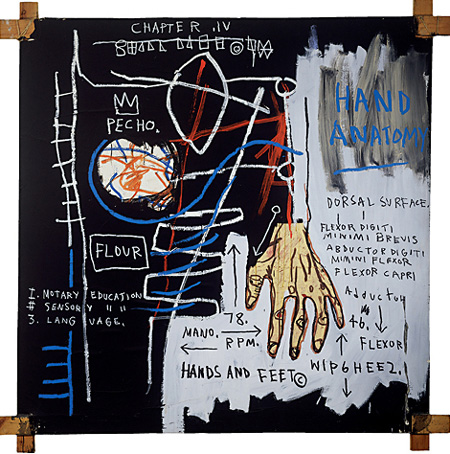 CHAPTER .IV
PECHO.
HAND
ANATOMY
DORSAL SURFACE.
FLEXOR DIGITI
MINIMI BREVIS
ABDUCTOR DIGITI
MIMINI FLAXOR
FLEXOR CAPRI
FLOUR
I. MOTARY EDUCATION
# SENSORY " "
3. LANGUAGE.
Adductor
78.
46.
MANO.
R.P.M.
FLEXOR
HANDS AND FEET©